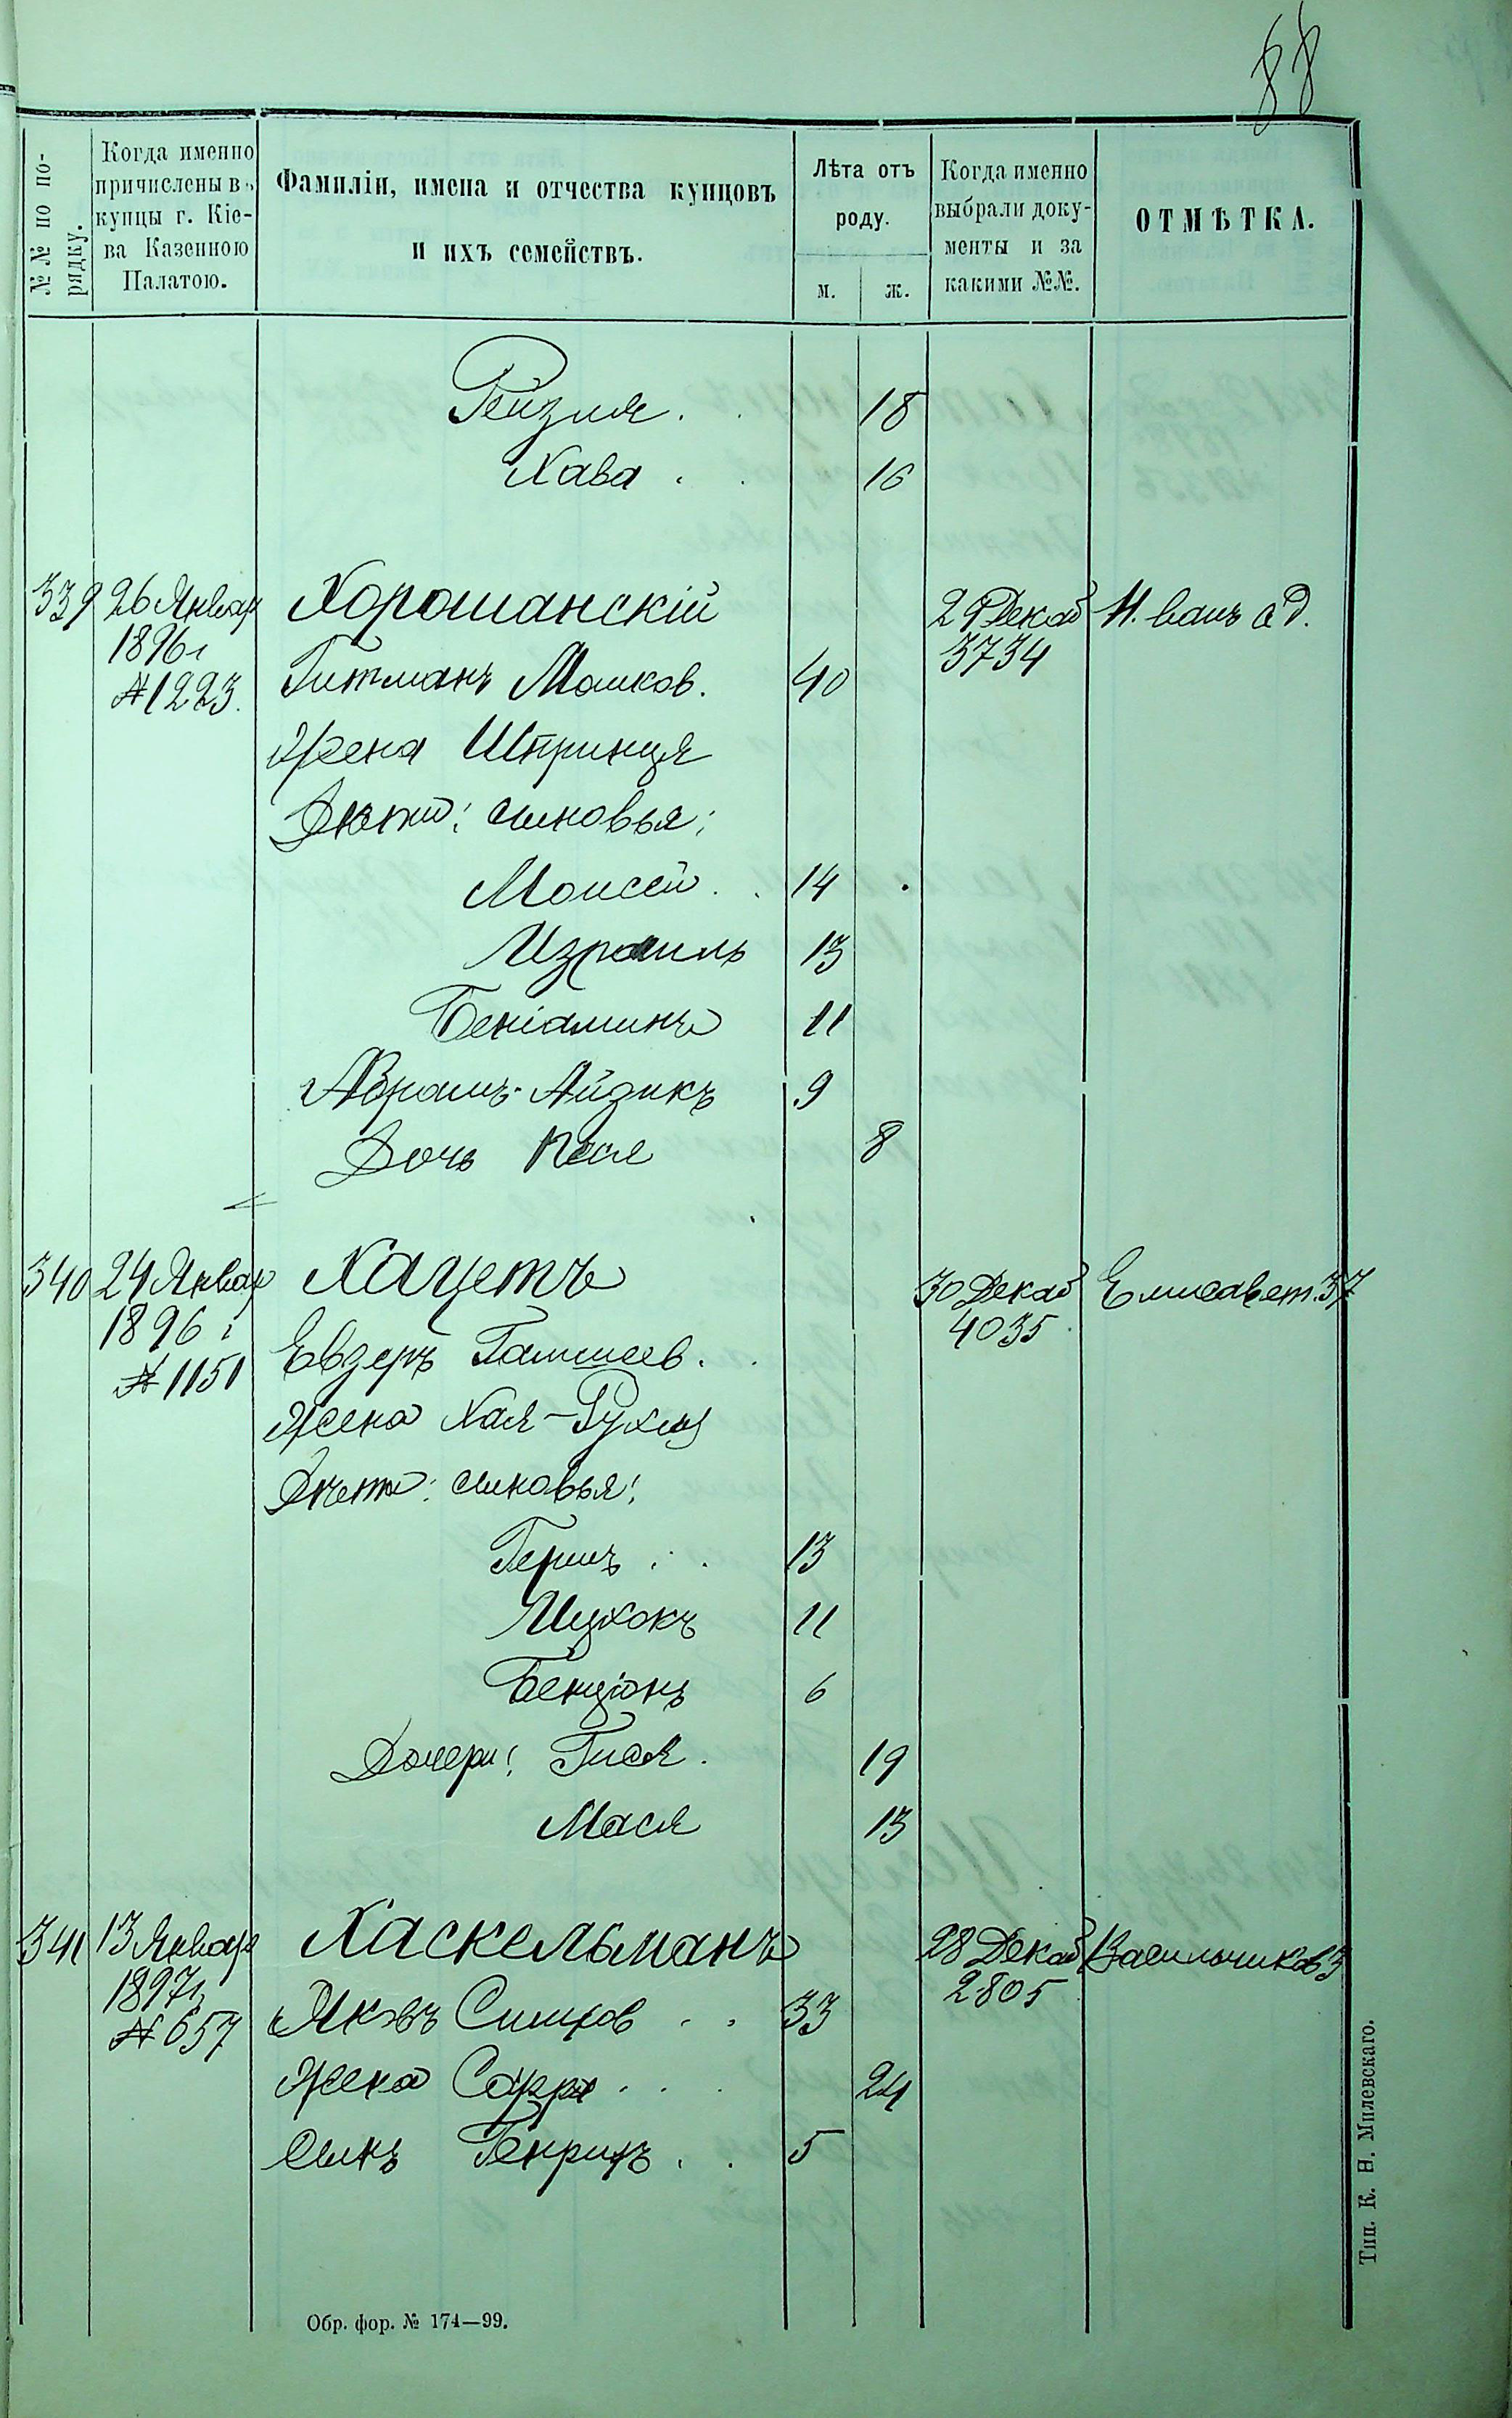 88
№№ по по-
рядку.
Когда именно
причислены въ
купцы г. Кіе-
ва Казенною
Палатою.
Фамиліи, имена и отчества купцовъ
и ихъ семействъ.
Лѣта отъ
роду.
м. ж.
Когда именно
выбрали доку-
менты и за
какими №№.
ОТМѢТКА.
Рейзля . . 18
Хава . . 16
339 26 Январ Хорошанскій 29 Декаб
1896 г 3734
№ 1223. Гитманъ Мошков. 40
Жена Шпринця
Дѣти: сыновья:
Моисей . . 14
Израиль 13
Беніаминъ 11
Абрамъ-Айзикъ 9
Дочь Песя 8
340 24 Январ Хацетъ 30 Декаб Елисавет. 37
1896 г 4035
№ 1151 Евзеръ
Жена Хая-Рухля
Дѣти: сыновья:
Гершъ . . 13
Ицхокъ 11
Бенціонъ 6
Дочери: Гися . 19
Мася 13
341 13 Январ Хаскельманъ 28 Декаб Васильчиков 3
1897 г 2805
№ 657 Яковъ Симхов . . 33
Жена Сарра . . . 24
Сынъ Генрихъ . . 5
Обр. фор. № 174—99.
Тип. К. Н. Милевскаго.